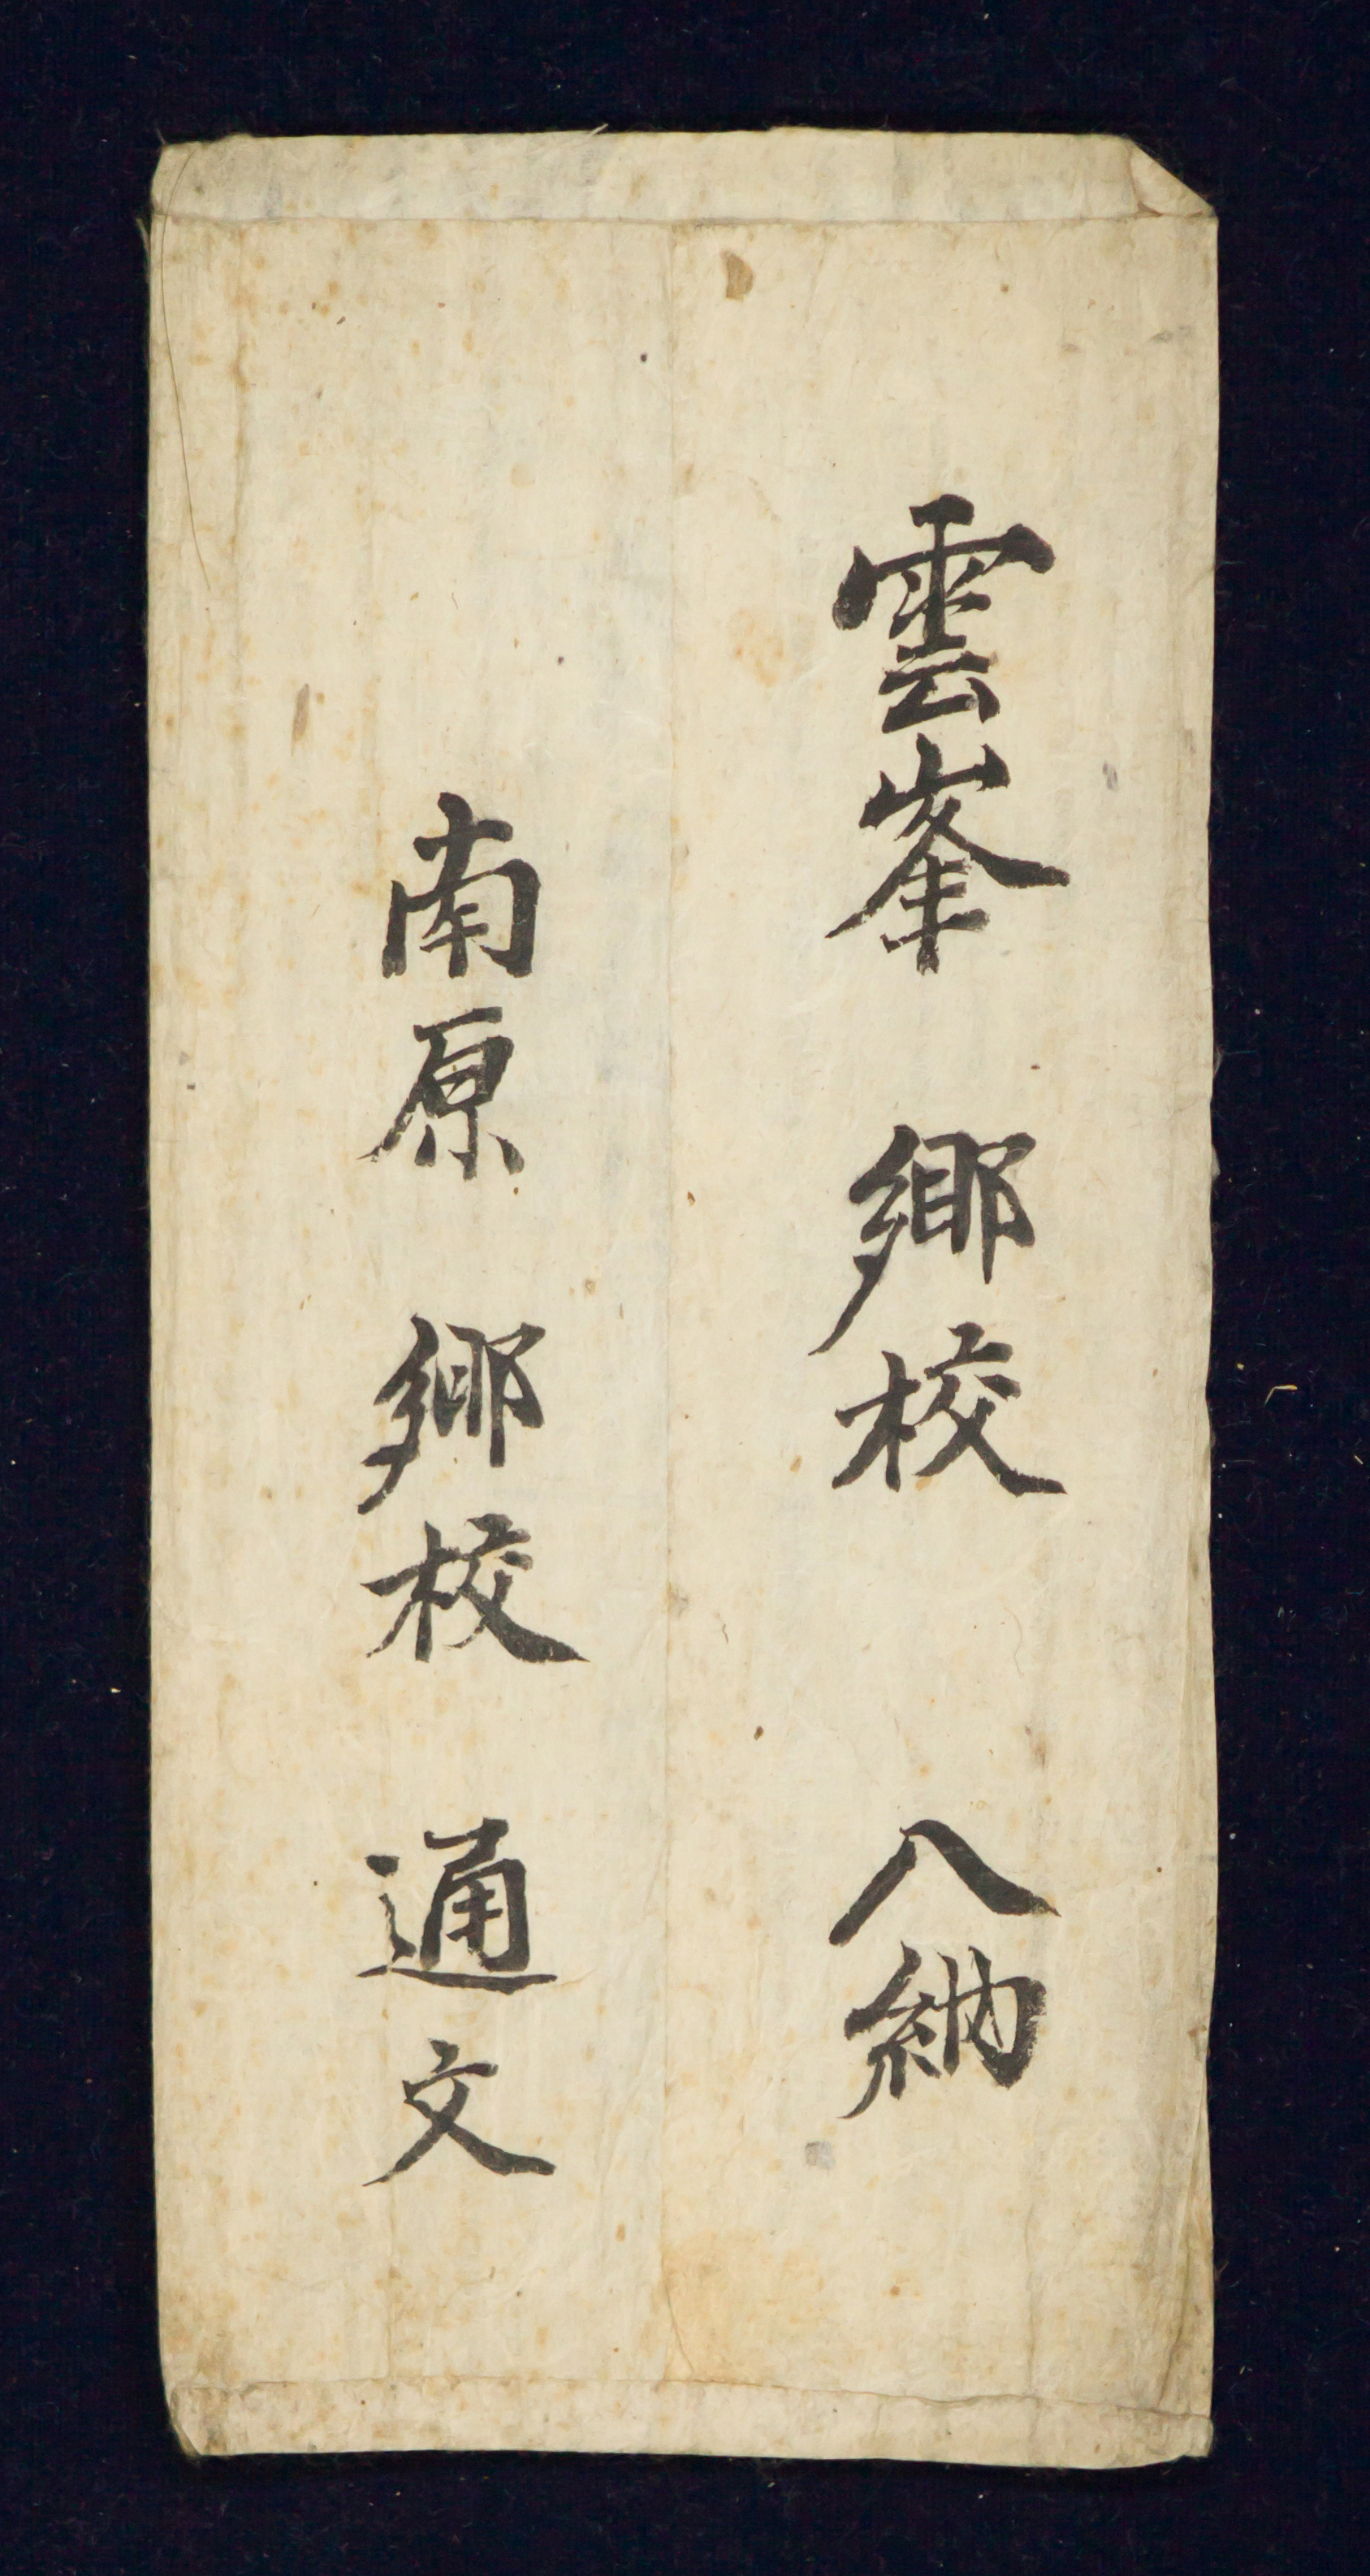 雲峯 鄕校 入納
南原 鄕校 通文